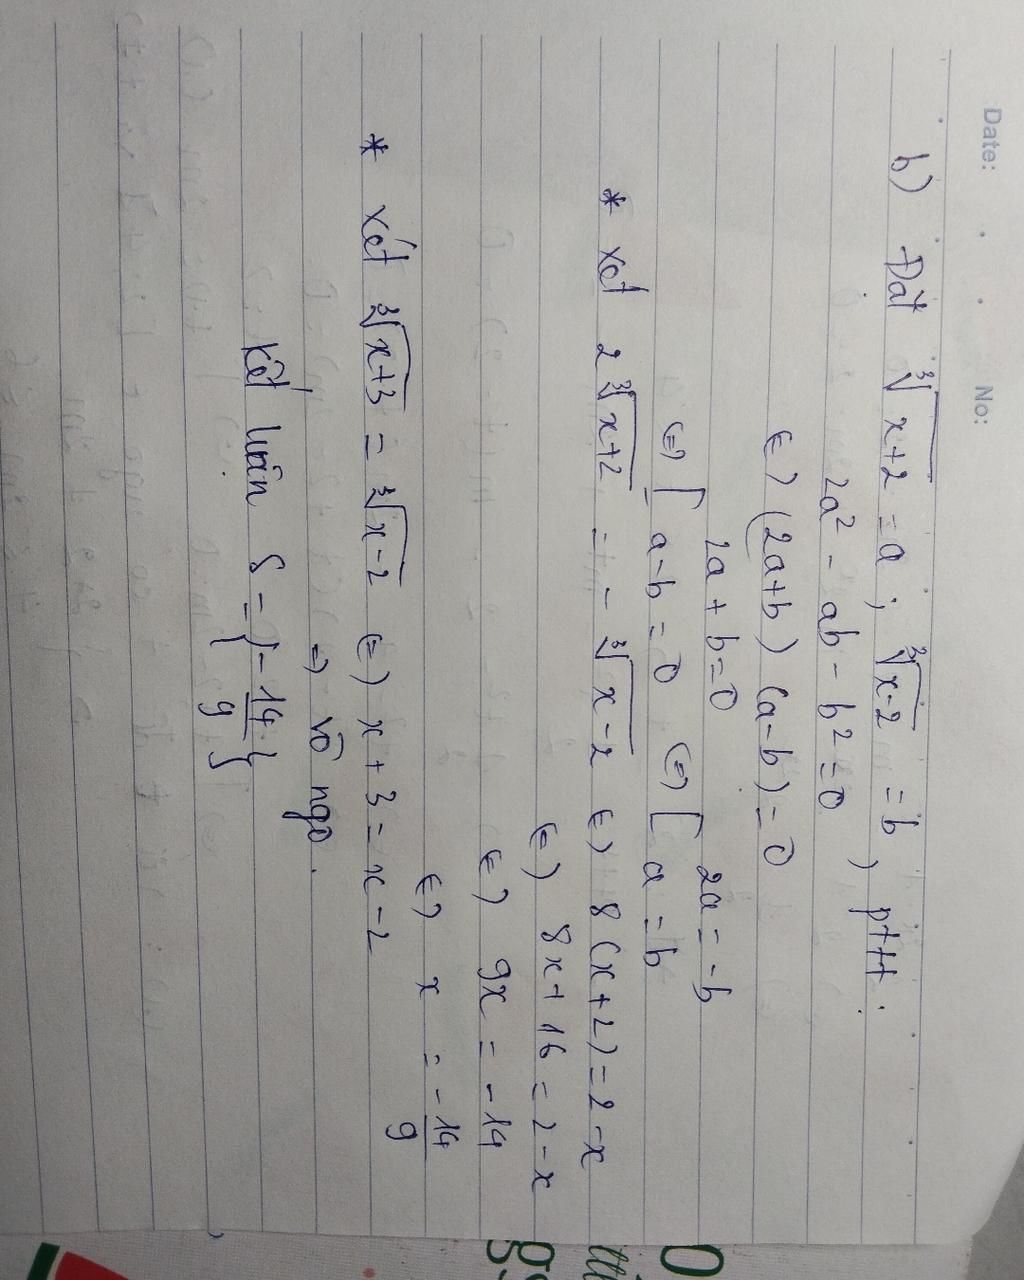 Date: No:
b) Đặt ∛x+2 = a ; ∛x-2 = b , pttt :
2a² - ab - b² = 0
(=) (2a+b) (a-b) = 0
(=) [ 2a + b = 0 (=) [ 2a = -b
a - b = 0 a = b
* xét 2∛x+2 = - ∛x-2 (=) 8(x+2) = 2-x
(=) 8x + 16 = 2-x
(=) 9x = -14
(=) x = -14/9
* xét ∛x+3 = ∛x-2 (=) x + 3 = x - 2
=) vô ngo.
Kết luận S = {-14/9}